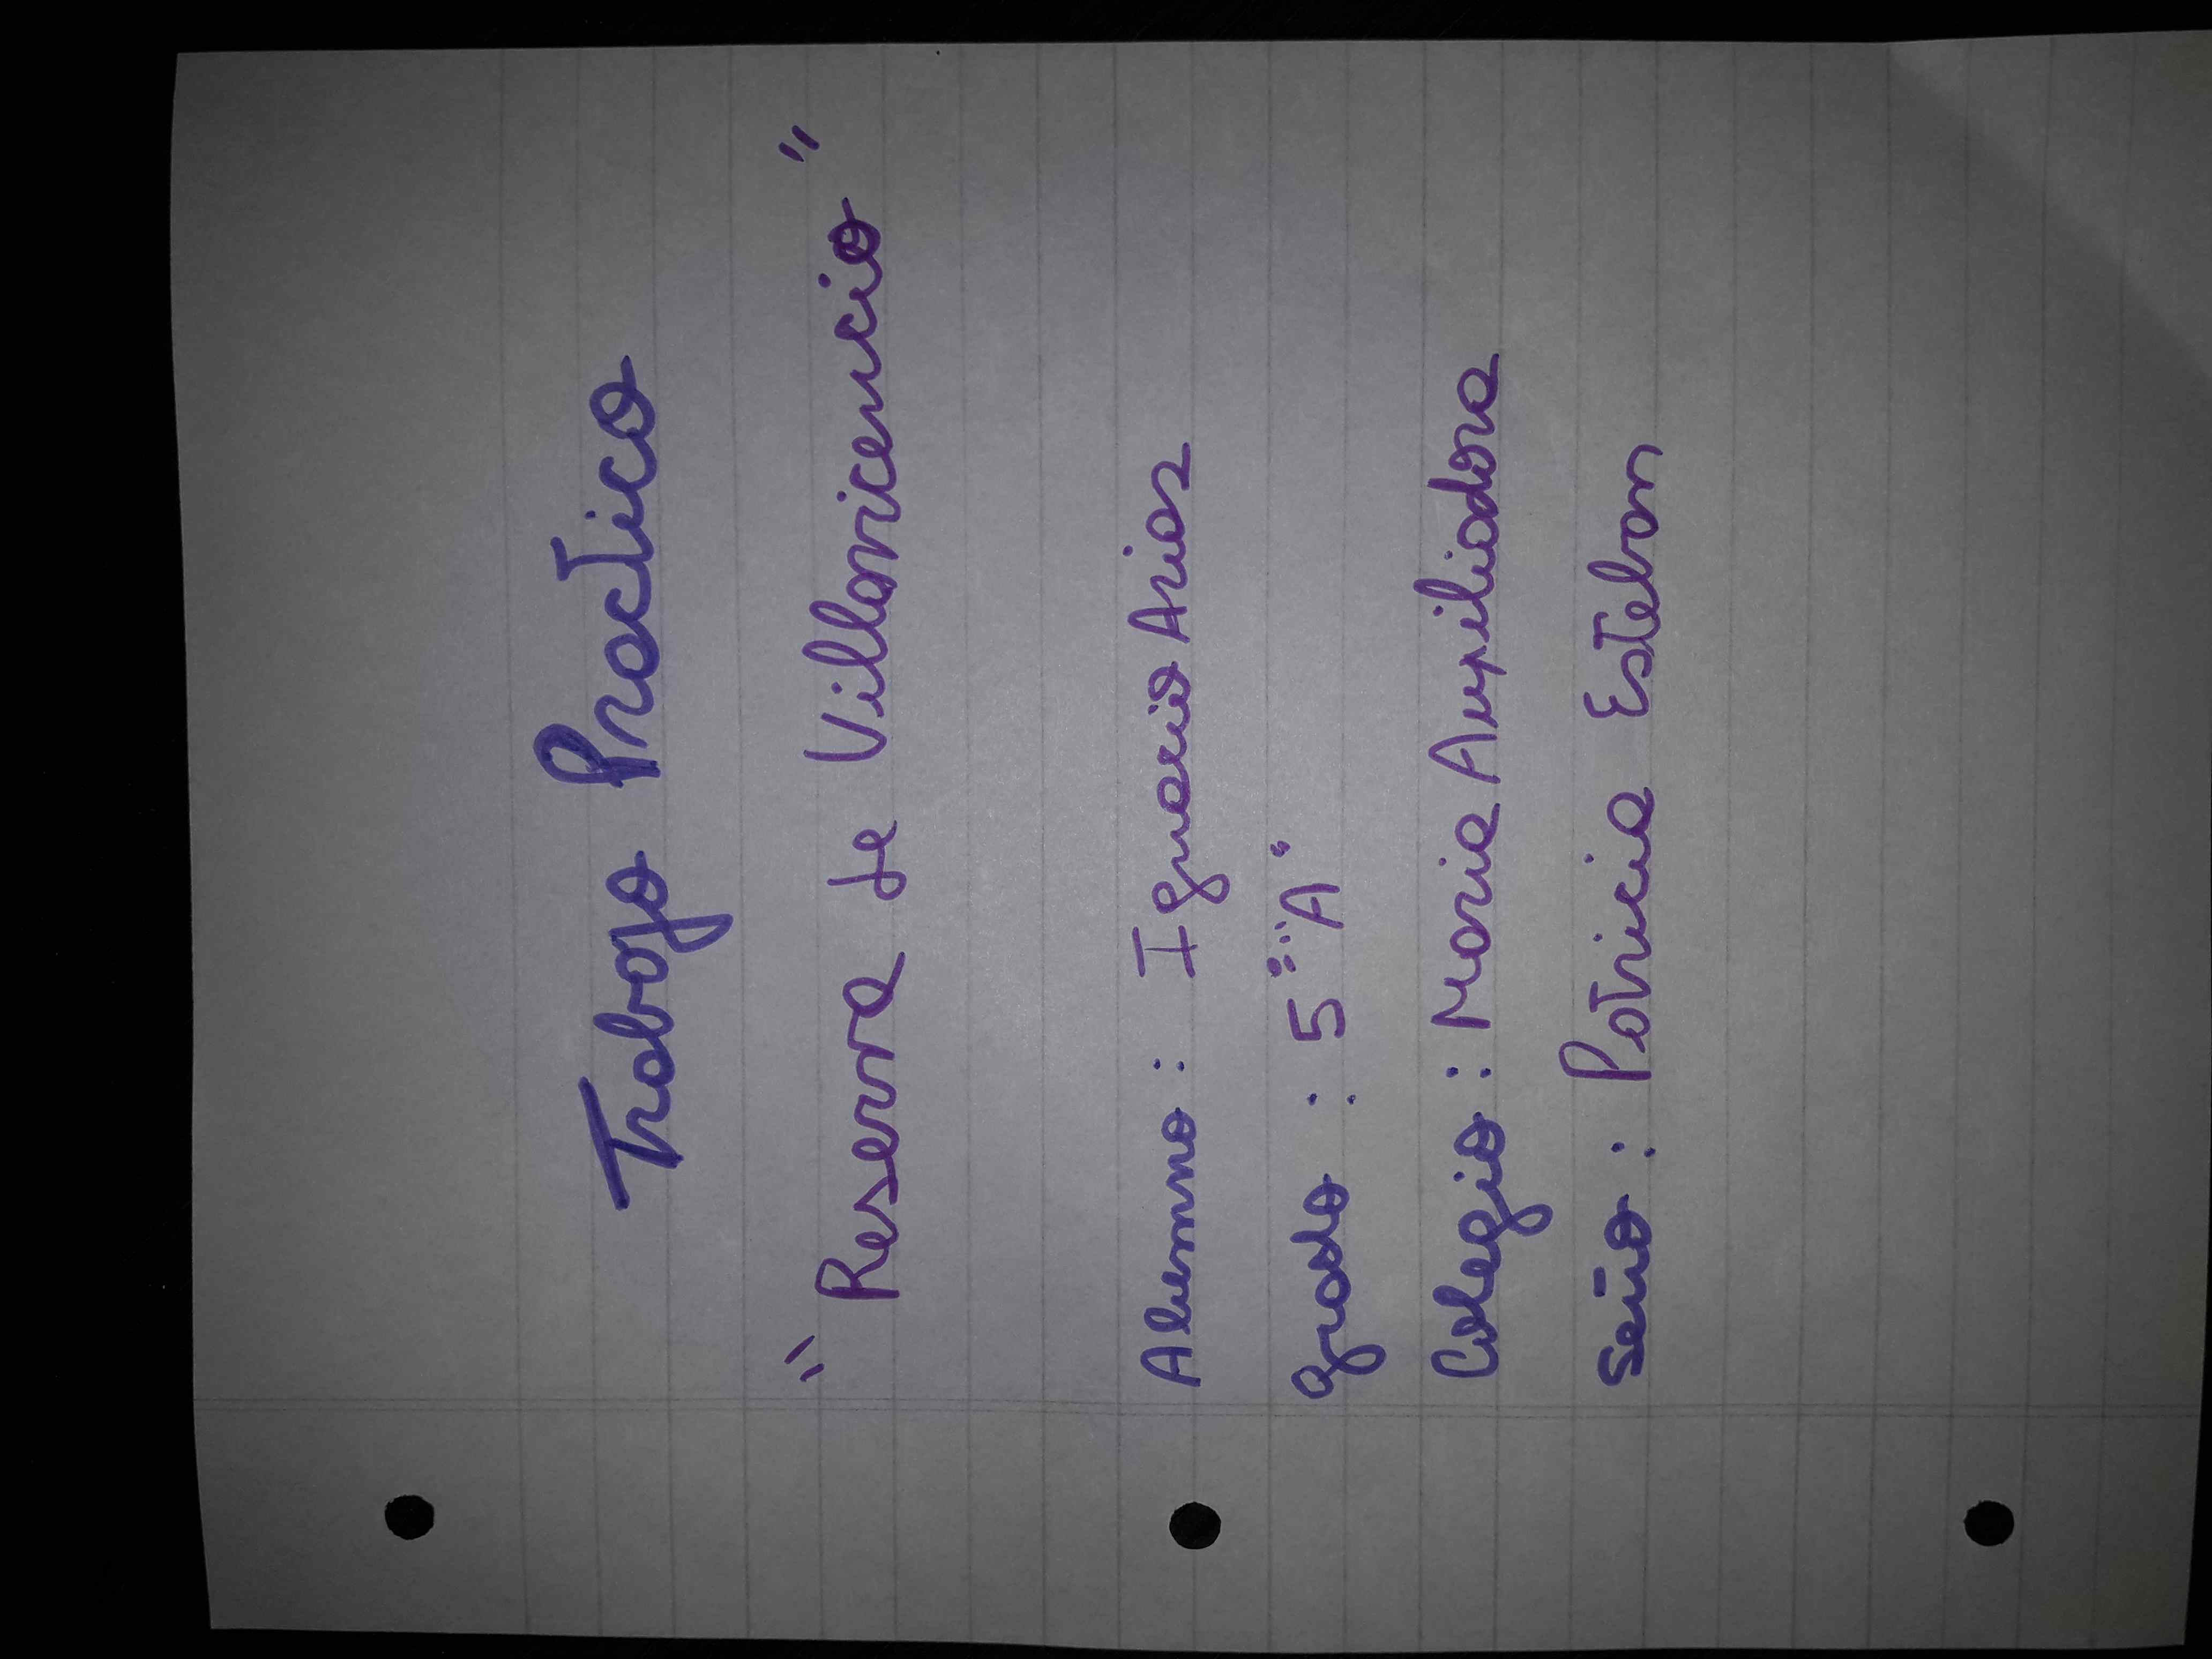 Trabajo Practico
"Reserva de Villavicencio"
Alumno: Ignacio Arias
grado: 5° "A".
Colegio: Maria Auxiliadora
Seño: Patricia Esteban